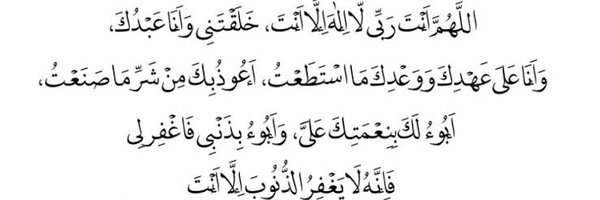 اللَّهُمَّ أَنْتَ رَبِّي لَّا إِلٰهَ إِلَّا أَنْتَ، خَلَقْتَنِي وَأَنَا عَبْدُكَ،
وَأَنَا عَلَى عَهْدِكَ وَوَعْدِكَ مَا اسْتَطَعْتُ، أَعُوذُ بِكَ مِنْ شَرِّ مَا صَنَعْتُ،
أَبُوءُ لَكَ بِنِعْمَتِكَ عَلَيَّ، وَأَبُوءُ بِذَنْبِي فَاغْفِرلِي
فَإِنَّهُ لَا يَغْفِرُ الذُّنُوبَ إِلَّا أَنْتَ